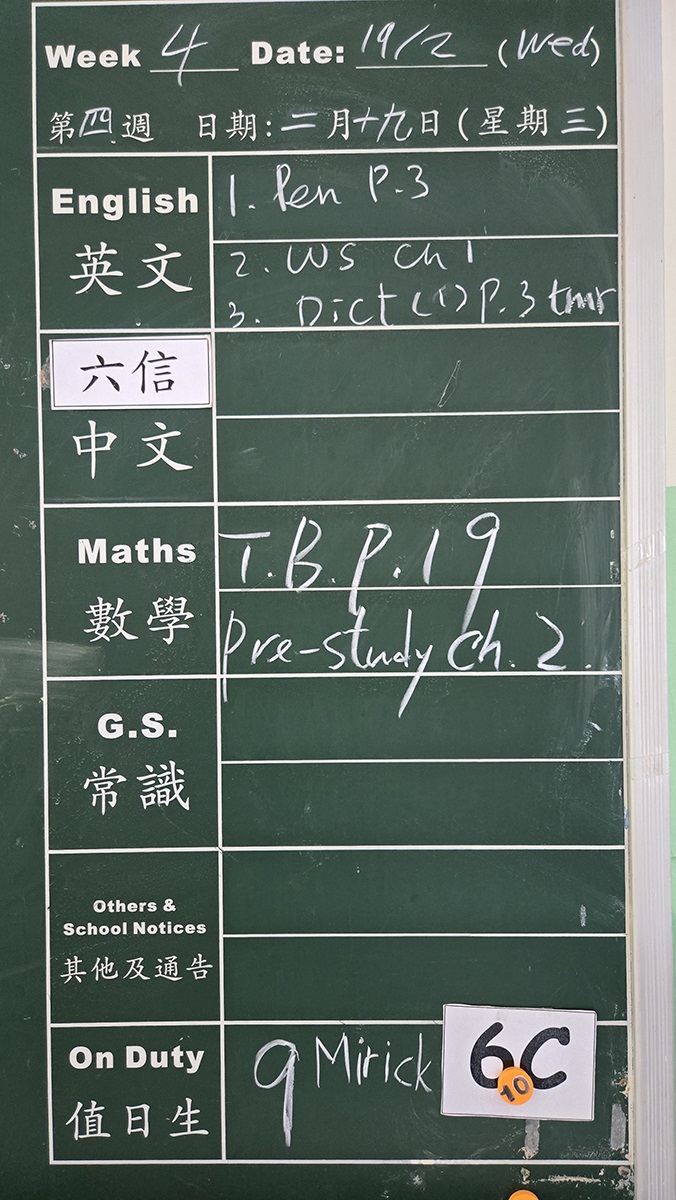 Week 4 Date: 19/2 (Wed)
第四週 日期:二月十九日(星期三)
English
英文
1. Pen P.3
2. WS Ch 1
3. Dict (1) P.3 tmr
六信
中文
Maths
數學
T.B.P.19
Pre-study Ch. 2.
G.S.
常識
Others &
School Notices
其他及通告
On Duty
值日生
9 Mirick
6C
10